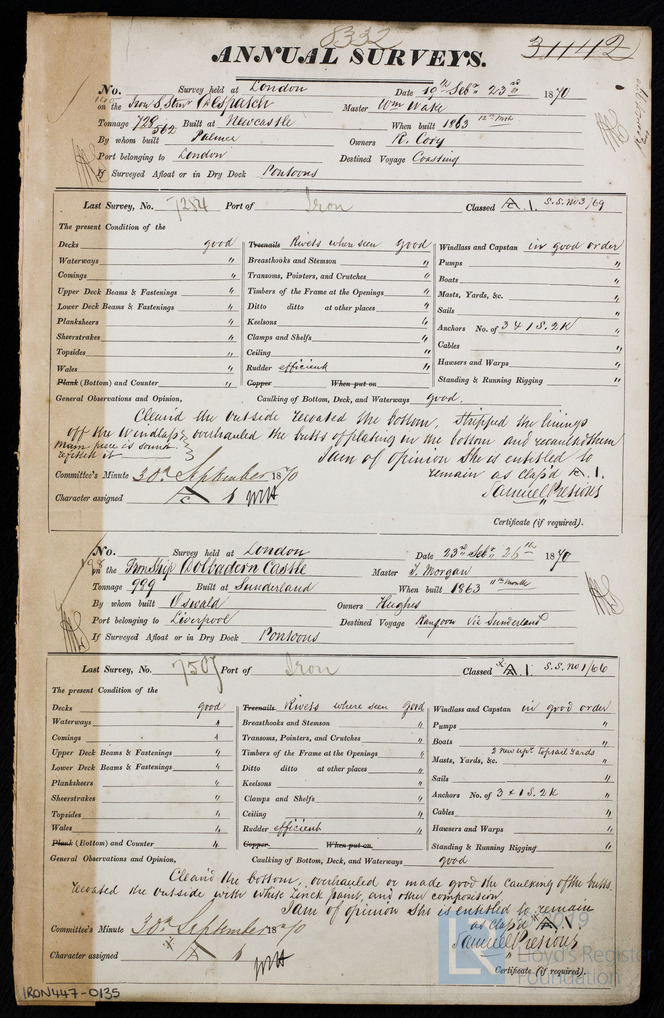 8332
ANNUAL SURVEYS. 31142
No. Survey held at London Date 19th Sebr 23rd 1870
on the Iron S. Stmr Despatch Master Wm Wake
Tonnage 728 562 Built at Newcastle When built 1863 12th Mth
By whom built Palmer Owners R. Cory
Port belonging to London Destined Voyage Coasting
If Surveyed Afloat or in Dry Dock Pontoons
Last Survey, No. 7284 Port of Iron Classed A.1. S.S. No 3/69
The present Condition of the
Decks good Treenails Rivets where seen good Windlass and Capstan in good order
Waterways " Breasthooks and Stemson " Pumps "
Comings " Transoms, Pointers, and Crutches " Boats "
Upper Deck Beams & Fastenings " Timbers of the Frame at the Openings " Masts, Yards, &c. "
Lower Deck Beams & Fastenings " Ditto ditto at other places " Sails "
Planksheers " Keelsons " Anchors No. of 3 & 1 S. 2 K "
Sheerstrakes " Clamps and Shelfs " Cables "
Topsides " Ceiling " Hawsers and Warps "
Wales " Rudder efficient Standing & Running Rigging "
Plank (Bottom) and Counter " Copper When put on
General Observations and Opinion, Caulking of Bottom, Deck, and Waterways good.
Clean'd the outside recoated the bottom, stripped the linings
off the Windlass & overhauled the butts of plating in the bottom and recaulk'd them
Main piece is sound refitted it I am of opinion she is entitled to
remain as class'd A.1.
Committee's Minute 30th September 1870
Samuel Presious
Character assigned A 1
Certificate (if required).
No. Survey held at London Date 23rd Sebr 26th 1870
on the Iron Ship Dolbadarn Castle Master J. Morgan
Tonnage 999 Built at Sunderland When built 1863 11th Month
By whom built Oswald Owners Hughes
Port belonging to Liverpool Destined Voyage Rangoon Via Sunderland
If Surveyed Afloat or in Dry Dock Pontoons
Last Survey, No. 7507 Port of Iron Classed A.1. S.S. No 1/66
The present Condition of the
Decks good Treenails Rivets where seen good Windlass and Capstan in good order
Waterways " Breasthooks and Stemson " Pumps "
Comings " Transoms, Pointers, and Crutches " Boats "
Upper Deck Beams & Fastenings " Timbers of the Frame at the Openings " Masts, Yards, &c. 2 new upr topsail yards
Lower Deck Beams & Fastenings " Ditto ditto at other places " Sails "
Planksheers " Keelsons " Anchors No. of 3 & 1 S. 2 K "
Sheerstrakes " Clamps and Shelfs " Cables "
Topsides " Ceiling " Hawsers and Warps "
Wales " Rudder efficient Standing & Running Rigging "
Plank (Bottom) and Counter " Copper When put on
General Observations and Opinion, Caulking of Bottom, Deck, and Waterways good
Clean'd the bottom, overhauled or made good the caulking of the butts.
recoated the outside with white Zinck paint, and other composition
I am of opinion She is entitled to remain
as class'd A.1.
Committee's Minute 30th September 1870
Samuel Presious
Character assigned A 1
Certificate (if required).
IRON447-0135
© 2019
Lloyd's Register
Foundation